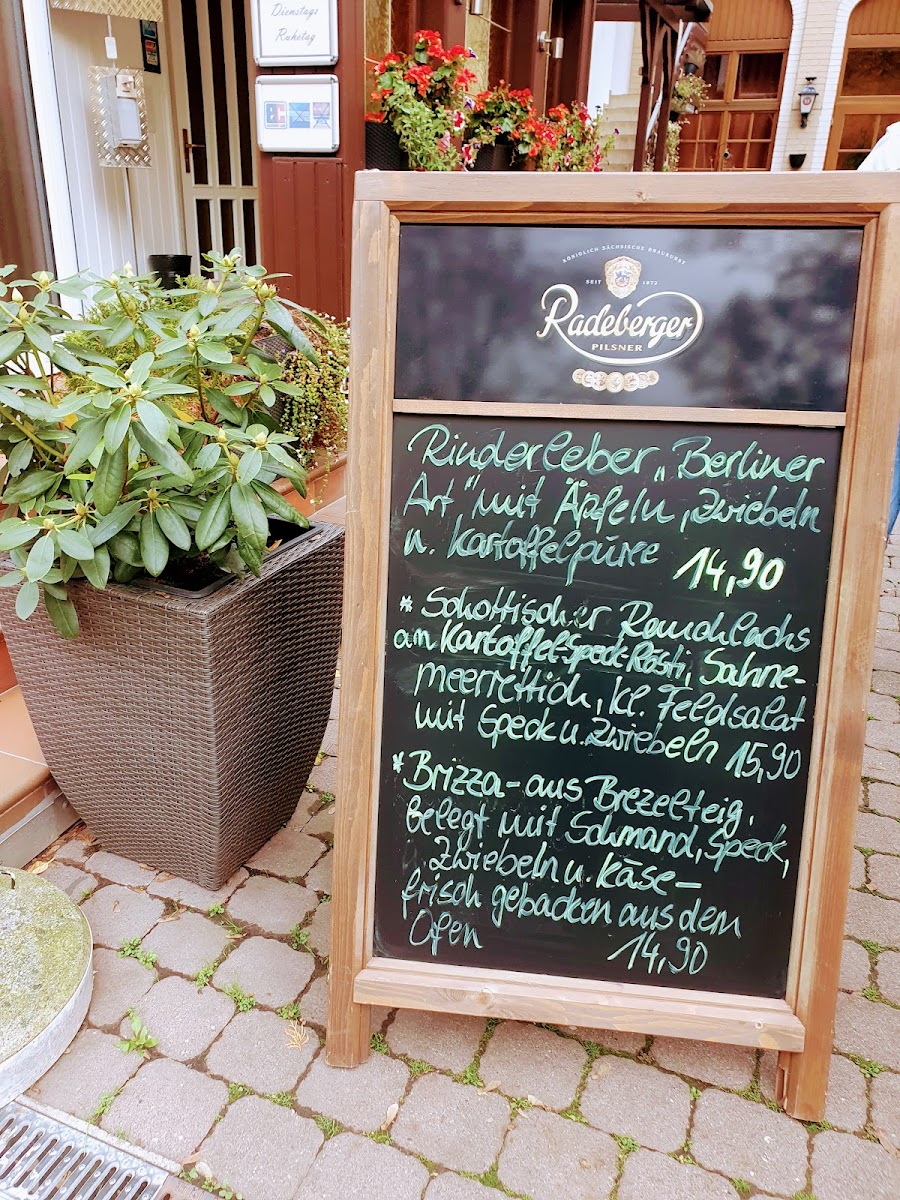 Dienstags
Ruhetag
KÖNIGLICH SÄCHSISCHE BRAUKUNST
SEIT 1872
Radeberger
PILSNER
Rinderleber „Berliner
Art" mit Äpfeln, Zwiebeln
u. Kartoffelpüree 14,90
* Schottischer Rauchlachs
an Kartoffel-Speck-Rösti, Sahne-
meerrettich, kl. Feldsalat
mit Speck u. Zwiebeln 15,90
* Brizza - aus Brezelteig,
belegt mit Schmand, Speck,
Zwiebeln u. Käse -
frisch gebacken aus dem
Ofen 14,90